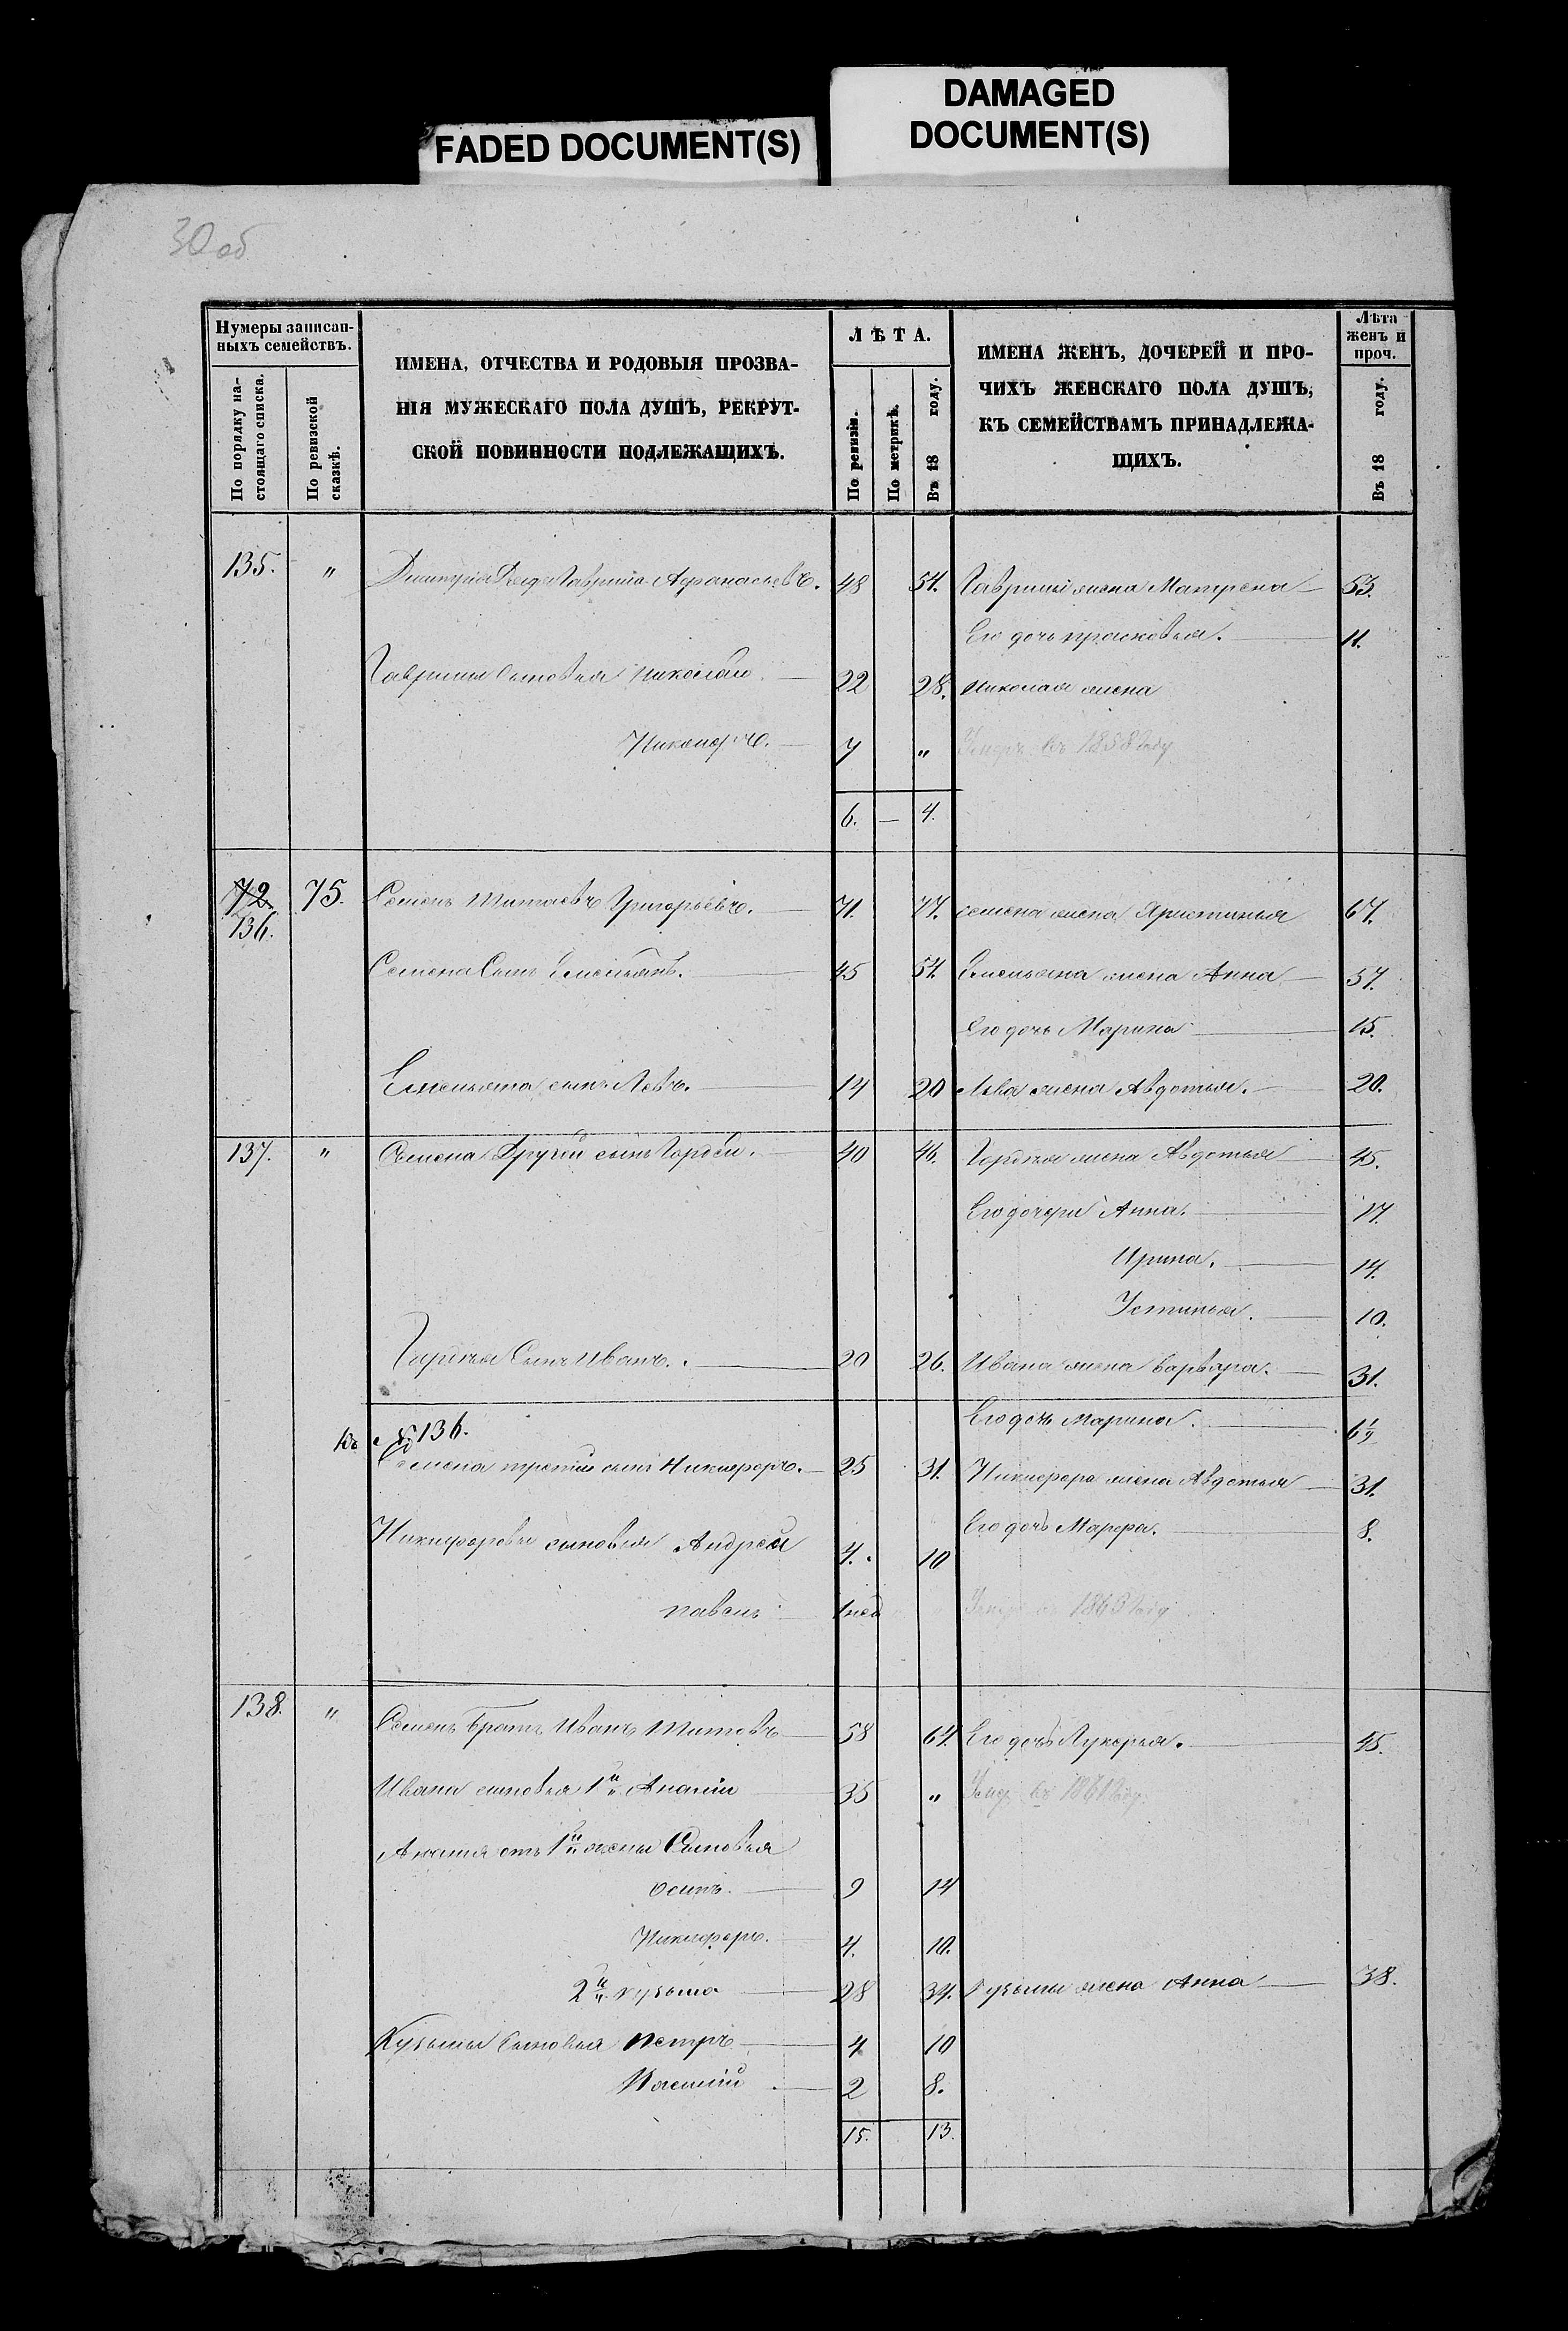 FADED DOCUMENT(S)
DAMAGED
DOCUMENT(S)
30 об
Нумеры записан-
ныхъ семействъ.
По порядку на-
стоящаго списка.
По ревизской
сказкѣ.
ИМЕНА, ОТЧЕСТВА И РОДОВЫЯ ПРОЗВА-
НІЯ МУЖЕСКАГО ПОЛА ДУШЪ, РЕКРУТ-
СКОЙ ПОВИННОСТИ ПОДЛЕЖАЩИХЪ.
ЛѢТА.
По ревизіи.
По метрикѣ.
Въ 18 году.
ИМЕНА ЖЕНЪ, ДОЧЕРЕЙ И ПРО-
ЧИХЪ ЖЕНСКАГО ПОЛА ДУШЪ,
КЪ СЕМЕЙСТВАМЪ ПРИНАДЛЕЖА-
ЩИХЪ.
Лѣта
женъ и
проч.
Въ 18 году.
135. " Дмитрія Дядя Гаврила Афанасьевъ. 48 54. Гаврилы жена Матрена 53.
Его дочь прасковья. 11.
Гаврилы Сыновья Николай 22 28. Николая жена
Никифоръ. 7 " Умеръ въ 1858 Году
6. — 4.
72. 75. Семенъ Титаевъ Григорьевъ. 71. 77. семена жена Христинья 67.
136.
Семена Сынъ Емельянъ. 45 51. Емельяна жена Анна 57.
Его дочь Марина 15.
Емельяна сынъ Левъ. 14 20 Льва жена Авдотья. 20.
137. " Семена Другій сынъ Гордѣй. 40 46. Гордѣя жена Авдотья 45.
Его дочери Анна. 17.
Ирина. 14.
Устинья. 10.
Гордѣя Сынъ Иванъ. 20 26. Ивана жена Варвара. 31.
Его дочь Марина. 6½
Къ № 136.
Семена третій сынъ Никифоръ. 25 31. Никифора жена Авдотья 31.
Его дочь Марфа. 8.
Никифоровы сыновья Андрей 4. 10
павелъ 1 нед Умеръ въ 1863 Году
138. " Семена Братъ Иванъ Титовъ 58 64. Его дочь Лукерья. 45.
Ивана сыновья 1й Ананій 35 " Умеръ въ 1861 Году.
Ананія отъ 1й жены Сыновья
осипъ. 9 14
Никифоръ. 4. 10.
2й кузьма 28 34. Кузьмы жена Анна 38.
Кузьмы Сыновья петръ 4 10
Василій 2 8.
15. 13.